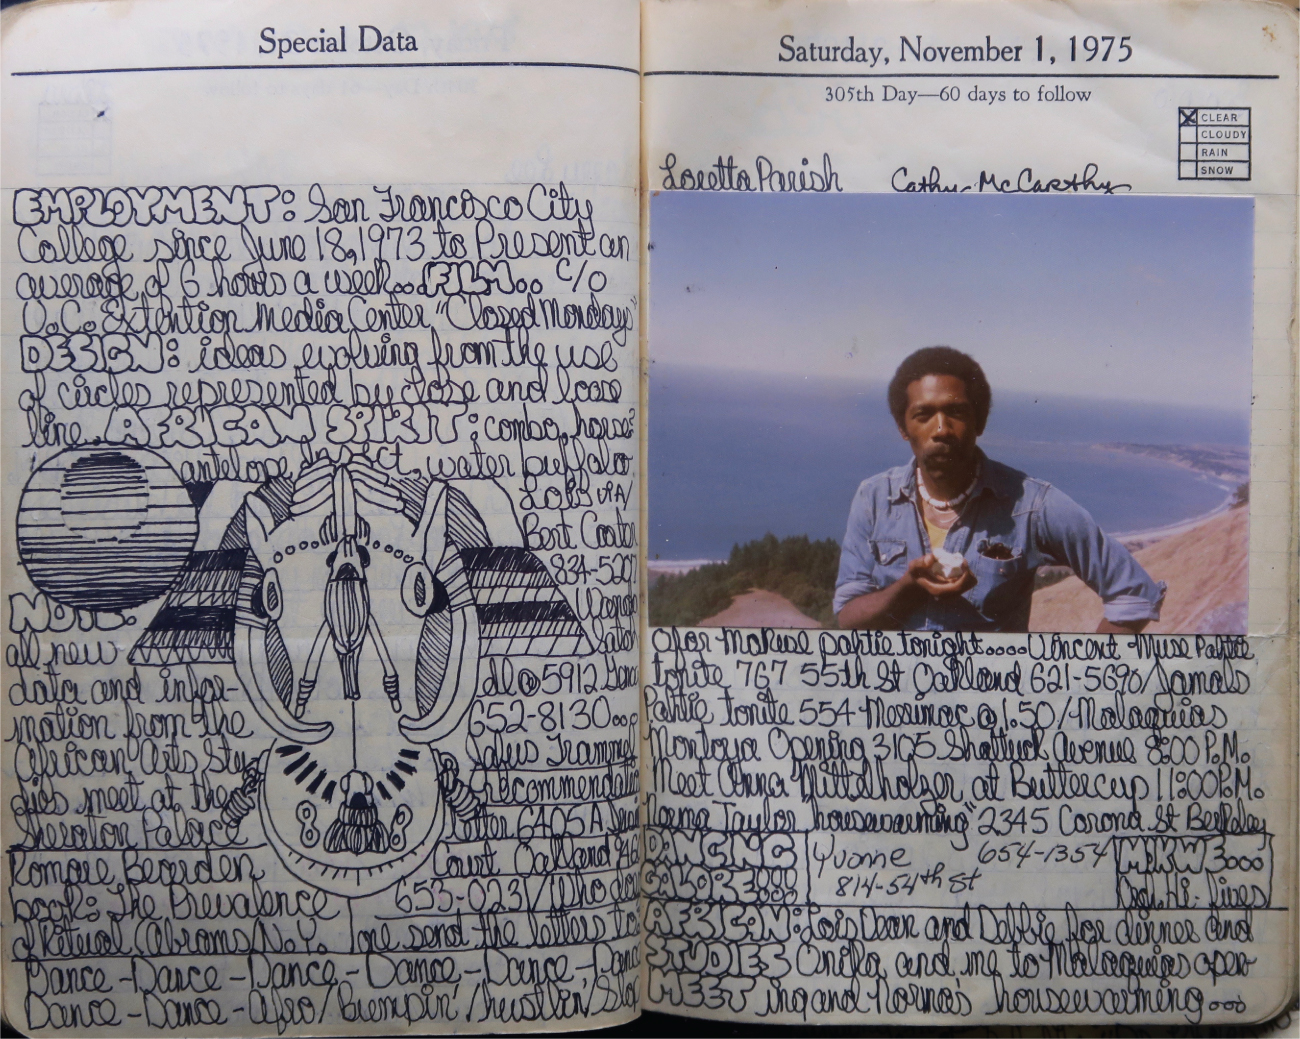 Special Data
EMPLOYMENT: San Francisco City
College since June 18, 1973 to Present an
average of 6 hours a week... FILM.. c/o
U.C. Extention Media Center "Closed Mondays"
DESIGN: ideas evolving from the use
of circles represented by close and loose
line. AFRICAN SPIRIT: combo, horse?
antelope, insect, water buffalo.
Bert
834-
NOTE:
all new
data and infor-
5912
mation from the
652-8130
African Arts Stu
recommendatio
dies meet at the
letter 6405 A
Sheraton Palace
Court Oakland 946
Romare Bearden
653-0231/Who do
book: The Prevalence
of Ritual, Abrams, N.Y. I one send the letters to
Dance-Dance-Dance-Dance-Dance-Dance
Dance-Dance-Afro/Bumpin'/hustlin'/
Saturday, November 1, 1975
305th Day—60 days to follow
CLEAR
CLOUDY
RAIN
SNOW
Loretta Parish Cathy McCarthy
partie tonight.... Vincent Muse Partie
tonite 767 55th St Oakland 621-5690/Jamals
Partie tonite 554 Merrimac @ 1.50/Malaquias
Montoya Opening 3105 Shattuck Avenue 8:00 P.M.
Meet Anna Mittelholzer at Buttercup 11:00 P.M.
Norma Taylor "housewarming" 2345 Corona St Berkeley
DANCING
GALOR3ooo
Yvonne 654-1354
814-54th St
MRKW3ooo
AFRICAN: Lois Dean and Debbie for dinner and
STUDIES Onika and me to Malaquias open-
MEET ing and Norma's housewarming...